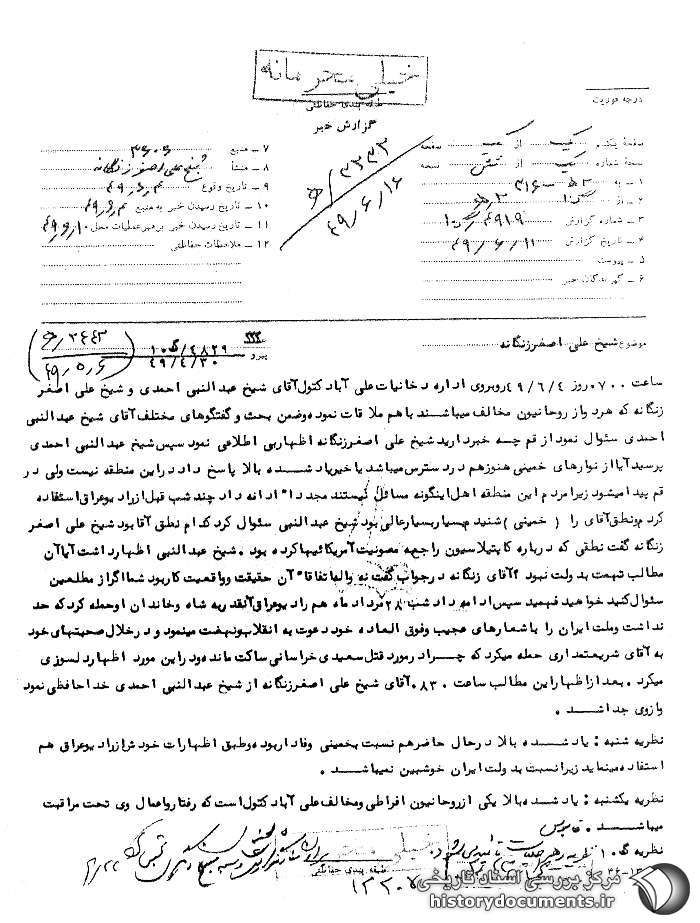 خیلی محرمانه
طبقه بندی حفاظتی
درجه فوریت
گزارش خبر
صفحه یکم یک از یک صفحه
نسخه شماره یک از شش نسخه
۱ - به ۳۱۶
۲ - از
۳ - شماره گزارش ۴۹۱۹
۴ - تاریخ گزارش ۴۹/۶/۱۱
۵ - پیوست
۶ - گیرندگان خبر
۷ - منبع
۸ - منشأ شیخ علی اصغر زنگانه
۹ - تاریخ وقوع ۴۹/۶/۴
۱۰ - تاریخ رسیدن خبر به منبع ۴۹/۶/۴
۱۱ - تاریخ رسیدن خبر برهبر عملیات محل ۴۹/۶/۱۰
۱۲ - ملاحظات حفاظتی
۳۳۳۳/
۴۹/۶/۱۶
موضوع شیخ علی اصغر زنگانه
پیرو ۴۸۲۹/
۴۹/۴/۳۰
۴۹/۵/۶
ساعت ۰۷۰۰ روز ۴۹/۶/۴ روبروی اداره دخانیات علی آباد کتول آقای شیخ عبدالنبی احمدی و شیخ علی اصغر
زنگانه که هر دو از روحانیون مخالف میباشند با هم ملاقات نموده و ضمن بحث و گفتگوهای مختلف آقای شیخ عبدالنبی
احمدی سئوال نمود از قم چه خبر دارید شیخ علی اصغر زنگانه اظهار بی اطلاعی نمود سپس شیخ عبدالنبی احمدی
پرسید آیا از نوارهای خمینی هنوز هم در دسترس میباشد یا خیر یاد شده بالا پاسخ داد در این منطقه نیست ولی در
قم پیدا میشود زیرا مردم این منطقه اهل اینگونه مسائل نیستند مجددا" ادامه داد چند شب قبل از رادیو عراق استفاده
کردم و نطق آقای را ( خمینی ) شنیدم بسیار بسیار عالی بود شیخ عبدالنبی سئوال کرد کدام نطق آقا بود شیخ علی اصغر
زنگانه گفت نطقی که درباره کاپیتلاسیون راجع به مصونیت آمریکائیها کرده بود . شیخ عبدالنبی اظهار داشت آیا آن
مطالب تهمت بدولت نبود ؟ آقای زنگانه در جواب گفت نه والله اتفاقا" آن حقیقت و واقعیت کار بود شما اگر از مطلعین
سئوال کنید خواهید فهمید سپس ادامه داد شب ۲۸ مرداد ماه هم رادیو عراق آنقدر به شاه و خاندان او حمله کرد که حد
نداشت و ملت ایران را با شعارهای عجیب و فوق العاده خود دعوت به انقلاب و نهضت مینمود و در خلال صحبتهای خود
به آقای شریعتمداری حمله میکرد که چرا در مورد قتل سعیدی خراسانی ساکت مانده و در این مورد اظهار دلسوزی
میکرد . بعد از اظهار این مطالب ساعت ۰۸۳۰ آقای شیخ علی اصغر زنگانه از شیخ عبدالنبی احمدی خداحافظی نمود
و از وی جدا شد .
نظریه شنبه : یاد شده بالا در حال حاضر هم نسبت بخمینی وفادار بوده و طبق اظهارات خودش از رادیو عراق هم
استفاده مینماید زیرا نسبت بدولت ایران خوشبین نمیباشد .
نظریه یکشنبه : یاد شده بالا یکی از روحانیون افراطی و مخالف علی آباد کتول است که رفتار و اعمال وی تحت مراقبت
میباشد .
نظریه گ . ۱ نظریه رهبر عملیات
خیلی محرمانه
طبقه بندی حفاظتی
مرکز بررسی اسناد تاریخی
historydocuments.ir